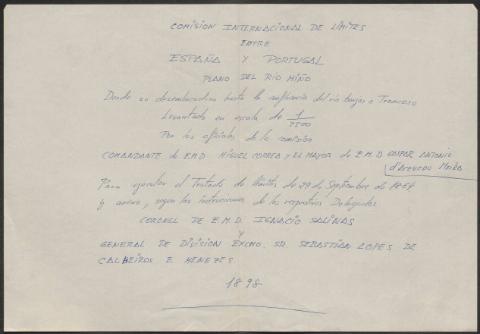 COMISION INTERNACIONAL DE LÍMITES
ENTRE
ESPAÑA Y PORTUGAL
PLANO DEL RIO MIÑO
Desde su desembocadura hasta la confluencia del rio Barjas o Trancoso
Levantado en escala de 1/2500
Por los oficiales de la comision
COMANDANTE de E.M.D. MIGUEL CORREA y EL MAYOR de E.M. D. GASPAR ANTONIO
d'Azevedo Meira
Para ejecutar el Tratado de límites de 29 de Septiembre de 1864
y anexo, segun las instrucciones de los respectivos Delegados
CORONEL DE E.M.D. IGNACIO SALINAS
Y
GENERAL DE DIVISION EXCMO. SR. SEBASTIAN LOPES DE
CALHEIROS E MENEZES.
1898